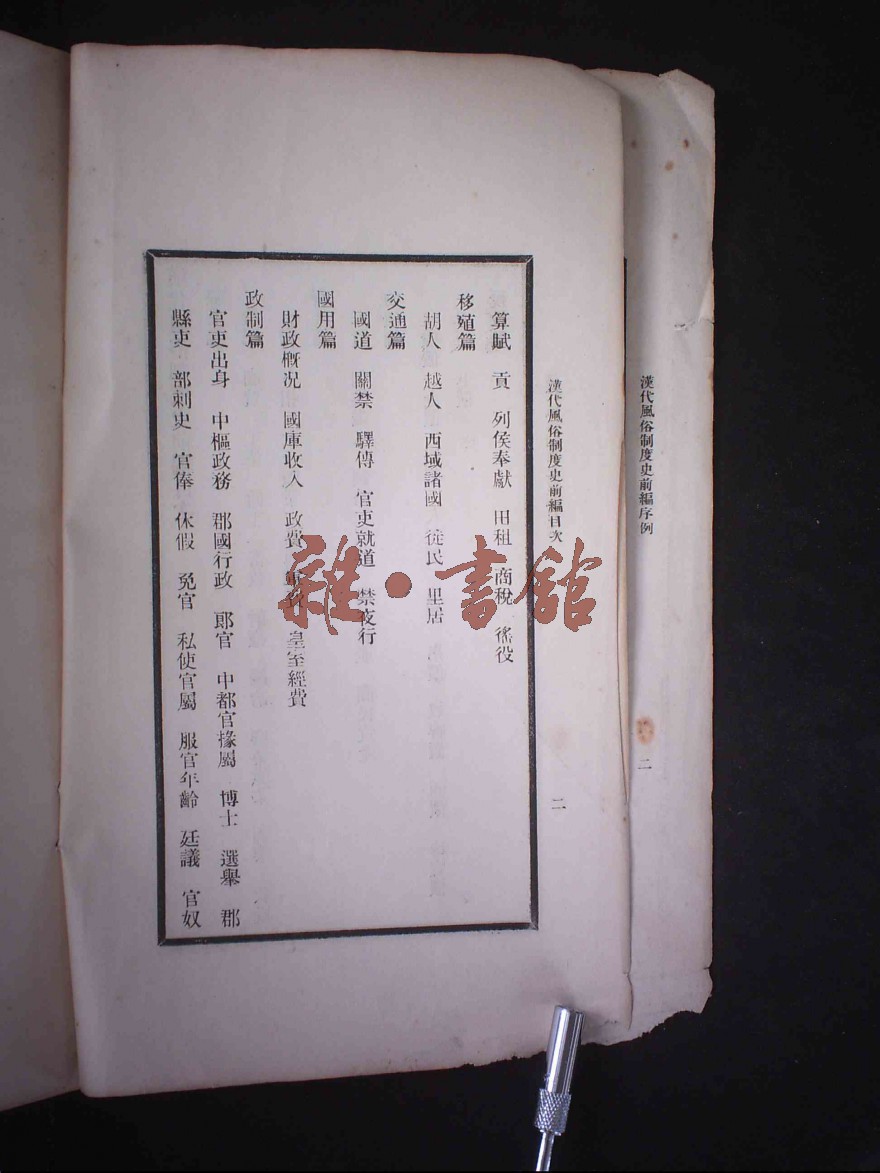 漢代風俗制度史前編序例
二
漢代風俗制度史前編目次
二
算賦 貢 列侯奉獻 田租 商稅 徭役
移殖篇
胡人 越人 西域諸國 徙民 里居
交通篇
國道 關禁 驛傳 官吏就道 禁夜行
國用篇
財政概况 國庫收入 政費 皇室經費
政制篇
官吏出身 中樞政務 郡國行政 郎官 中都官掾屬 博士 選舉 郡
縣吏 部刺史 官俸 休假 免官 私使官屬 服官年齡 廷議 官奴
雜·書館